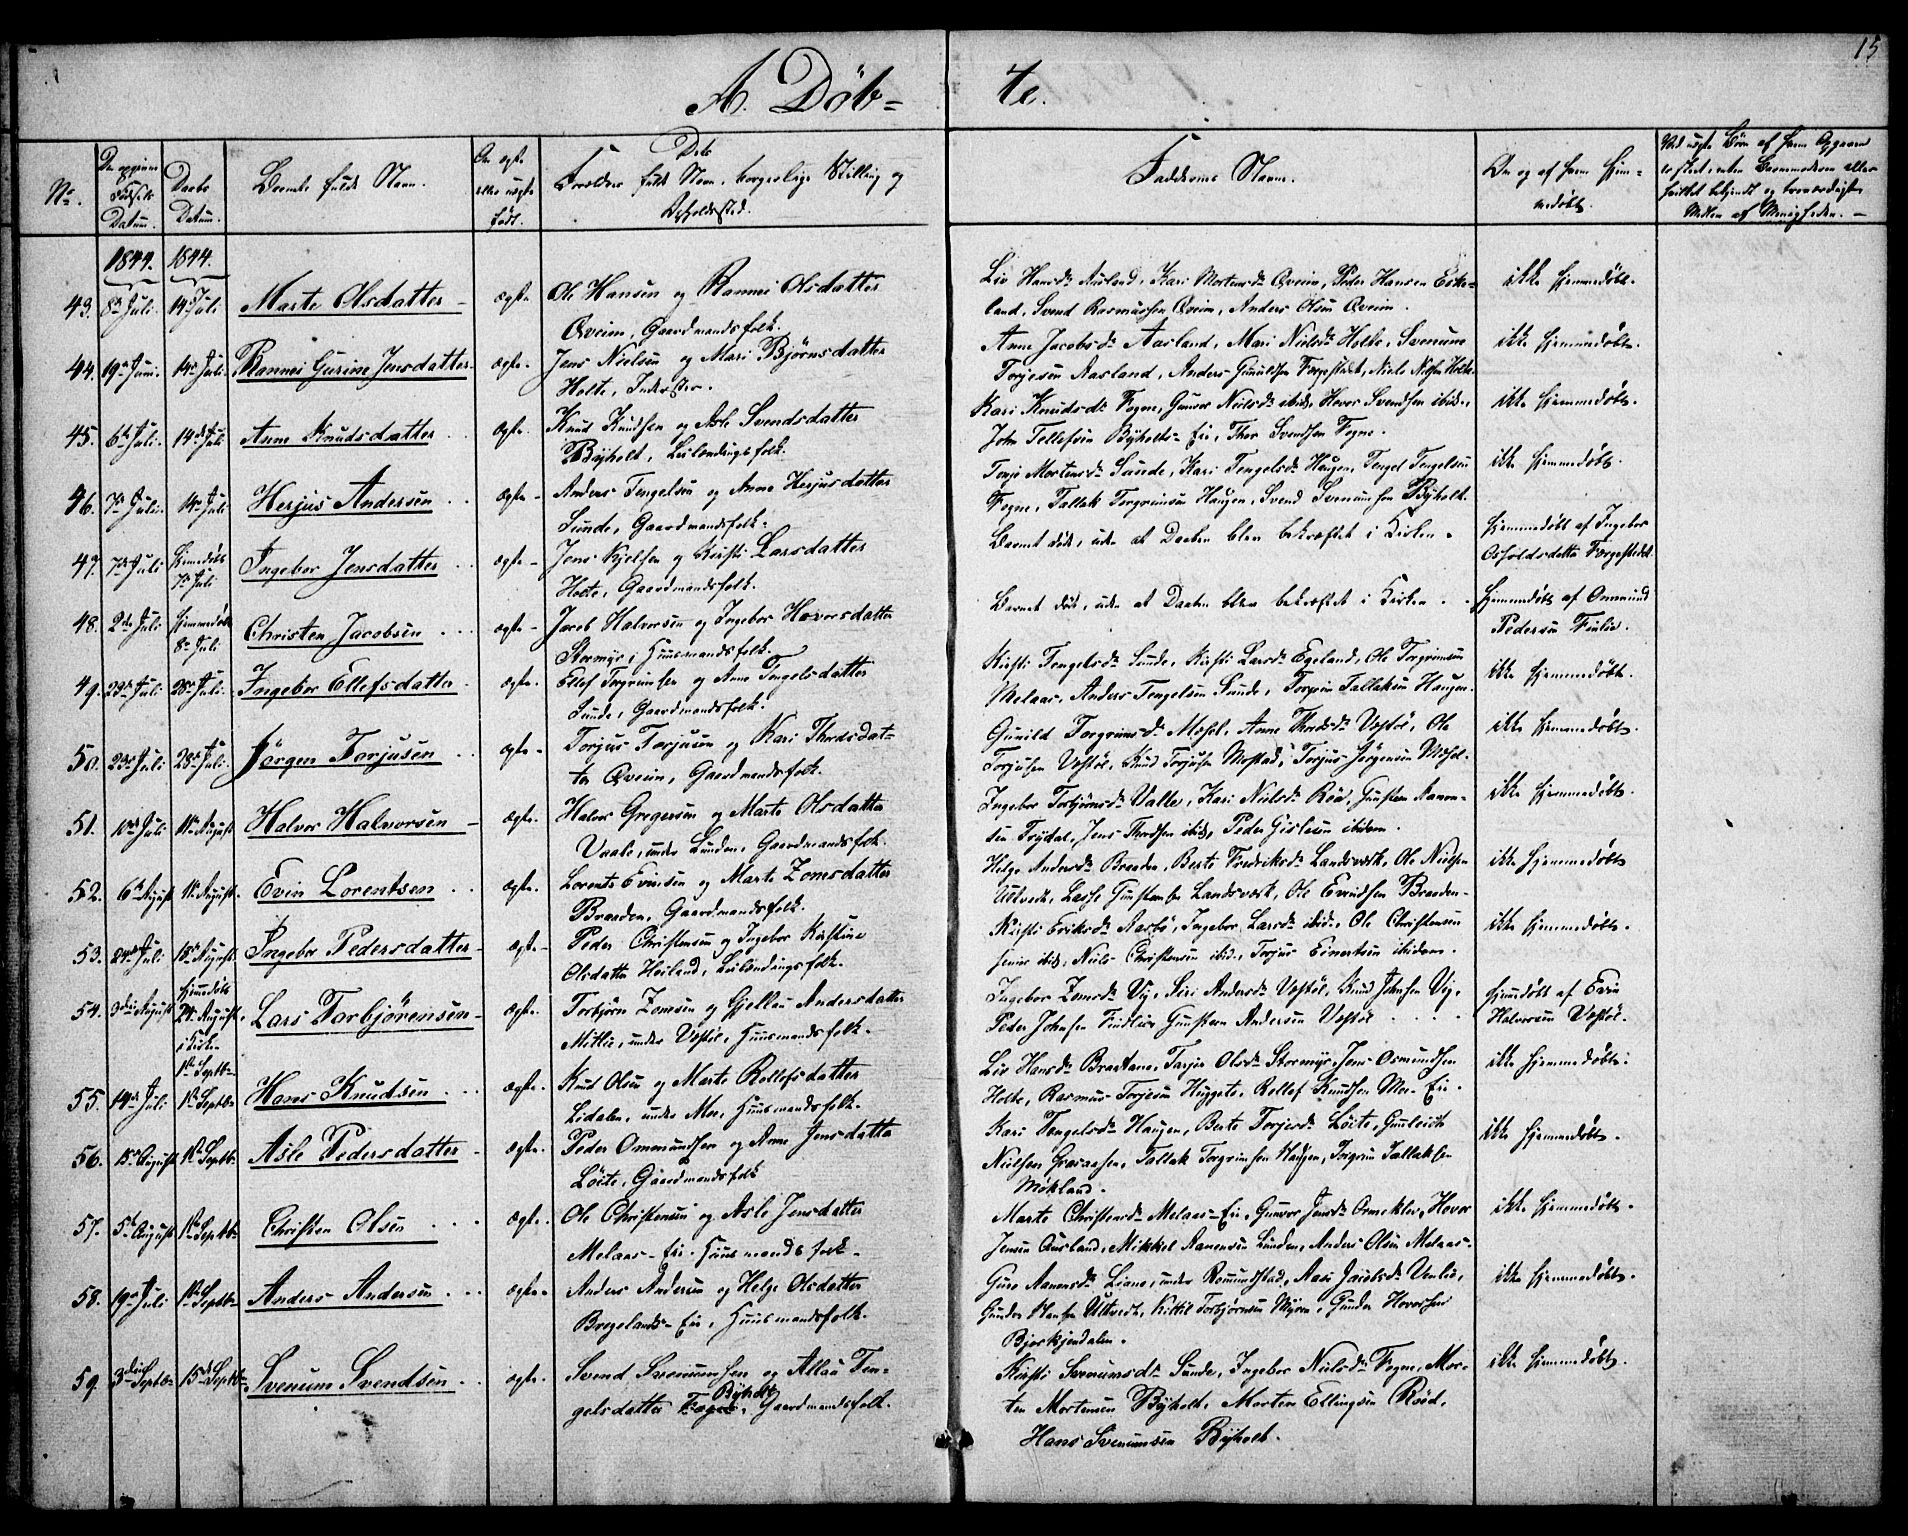 15
A. Döb- te.
No.
Fødsels Datum.
Daabs Datum.
Barnets fulde Navn.
Om ægte eller uægte født.
Forældres fulde Navn, borgerlige Stilling og Opholdssted.
Faddernes Navne.
1844. 1844.
43. 8de Juli. 14de Juli Marte Olsdatter ægte. Ole Hansen og Olsdatter
Qveim, Gaardmandsfolk.
Liv Hansdr Ausland, Kari Mortensdr Qveim, Peder Hansen Eske-
land, Svend Rasmussen Qveim, Anders Olsen Qveim.
ikke hjemmedøbt.
44. 19de Juni. 14de Juli Gurine Jensdatter ægte. Jens Nielsen og Mari Bjørnsdatter
Holte, Inderster.
Anne Jacobsdr Aasland, Mari Nielsdr Holte, Svenum
Torjesen Aasland, Anders Gunuldsen Færgestedet, Niels Nilsen Holte
ikke hjemmedøbt.
45. 6te Juli. 14de Juli Anne Knudsdatter ægte. Knud Knudsen og Asle Svendsdatter
Bÿholt, Leilændingsfolk.
Kari Knudsdr Fogne, Gunvor Nielsdr ibid, Hover Svendsen ibid.,
John Tellefsen Bÿholts-Eie, Thor Svendsen Fogne.
ikke hjemmedøbt.
46. 7de Juli. 14de Juli Herjus Andersen ægte Anders Tengelsen og Anne Herjusdatter
Sunde, Gaardmandsfolk.
Torje Mortensdr Sunde, Kari Tengelsdr Haugen, Tengel Tengelsen
Fogne, Tallak Torgrimsen Haugen, Svend Svenumsen Bÿholt
ikke hjemmedøbt.
47. 7de Juli Hjemmedøbt 7de Juli Ingebor Jensdatter ægte Jens Kjelsen og Kirsti Larsdatter
Holte, Gaardmandsfolk.
Barnet døde, uden at Daaben blev bekræftet i Kirken.
Hjemmedøbt af Ingebor
Osholdsdatter Færgestedet
48. 2den Juli Hjemmedøbt 8de Juli Christen Jacobsen ægte Jacob Halvorsen og Ingebor Hoversdatter
Stormÿr, Huusmandsfolk.
Barnet døde, uden at Daaben blev bekræftet i Kirken.
Hjemmedøbt af Ommund
Pedersen
49. 28de Juli. Ingebor Ellefsdatter ægte. Ellef Torgrimsen og Anne Tengelsdatter
Sunde, Gaardmandsfolk.
Kirsti Tengelsdr Sunde, Kirsti Larsdr Egeland, Ole Torgrimsen
Melaas, Anders Tengelsen Sunde, Tallaksen Haugen.
ikke hjemmedøbt.
50. 23de Juli 28de Juli. Jörgen Torjusen ægte Torjus Torjusen og Kari Thordsdat-
ter Qveim, Gaardmandsfolk.
Gunild Torgrimsdr Mæhl, Anne Thordsdr Vostöl, Ole
Torjusen Vostöl, Knud Torjusen Mostad, Torjus Jörgensen
ikke hjemmedøbt.
51. 10de Juli 11te August Halvor Halvorsen ægte. Halvor Gregersen og Marte Olsdatter
Vaale, under Lunden, Gaardmandsfolk.
Ingebor Torbjörnsdr Valle, Kari Nielsdr Röd, Gunsten Aanon-
sen Frÿdal, Jens Thordsen ibid, Peder Gislesen ibidem.
ikke hjemmedøbt.
52. 6te August 11te August. Evin Lorentsen ægte. Lorents Evinsen og Marte Zomsdatter
Braaden, Gaardmandsfolk.
Helge Andersdr Braaden, Berte Fredriksdr Landsværk, Ole Nielsen
Ultvedt, Lasse Gunstensen Landsværk, Ole Evindsen Braaden
ikke hjemmedøbt
53. 24de Juli 18de August Ingebor Pedersdatter ægte Peder Christensen og Ingebor Kirstine
Olsdatter Heiland, Leilændingsfolk.
Kirsti Eriksdr Aarbö, Ingebor Larsdr ibid., Ole Christensen
senior ibid, Niels Christensen ibid, Torjus Einertsen ibidem.
ikke hjemmedøbt.
54. 3die August Hjemmedøbt 24de August. i Kirken 1ste Septbr Lars Torbjörensen ægte. Torbjörn Zomsen og Gjellau Andersdatter
Mitlie, under Vostöl, Huusmandsfolk.
Ingebor Zomsdr Vej, Siri Andersdr Vostöl, Knud Johnsen Vej,
Peder Johnsen Findlie, Gunsten Andersen Vostöl
hjemmedøbt af Evin
Halvorsen Vostöl.
55. 14de Juli 1ste Septbr Hans Knudsen ægte. Knud Olsen og Marte Rollefsdatter
Lidalen, under Moe, Huusmandsfolk.
Liv Hansdr Braatane, Tarjer Olsdr Stormÿr, Jens Osmundsen
Holte, Rasmus Torjesen Huggete, Rollef Knudsen Moe-Eie.
ikke hjemmedøbt
56. 15de August 1ste Septbr Asle Pedersdatter ægte. Peder Ommundsen og Anne Jensdatter
Löite, Gaardmandsfolk
Kari Tengelsdr Haugen, Berte Torjesdr Löite, Gunleich
Nielsen Graaasen, Tallak Torgrimsen Haugen, Torgrim Tallaksen
Mökland.
ikke hjemmedøbt.
57. 5te August 1ste Septbr Christen Olsen ægte. Ole Christensen og Asle Jensdatter
Melaas-Eie. Huusmandsfolk
Marte Christensdr Melaas-Eie, Gunvor Jensdr Ormeklev, Hover
Jensen Ausland, Mikkel Aanensen Lunden, Anders Olsen Melaas.
ikke hjemmedøbt.
58. 19de Juli 1ste Septbr Anders Andersen ægte. Anders Andersen og Helge Olsdatter
Bregelands-Eie, Huusmandsfolk.
Guro Aanensdr Liane, under Romundstad, Aase Jacobsdr Venlie,
Gunder Hansen Ultvedt, Kittil Torbjörnsen Myren, Gunder Hoversen
Bjorkjendalen.
ikke hjemmedøbt.
59. 3die Septbr 15de Septbr Svenum Svendsen ægte. Svend Svenumsen og Allau Ten-
gelsdatter Fogne Bÿholt, Gaardmandsfolk.
Kirsti Svenumsdr Sunde, Ingebor Nielsdr Fogne, Mor-
ten Mortensen Bÿholt, Morten Ellingsen Röed,
Hans Svenumsen Bÿholt.
ikke hjemmedøbt.